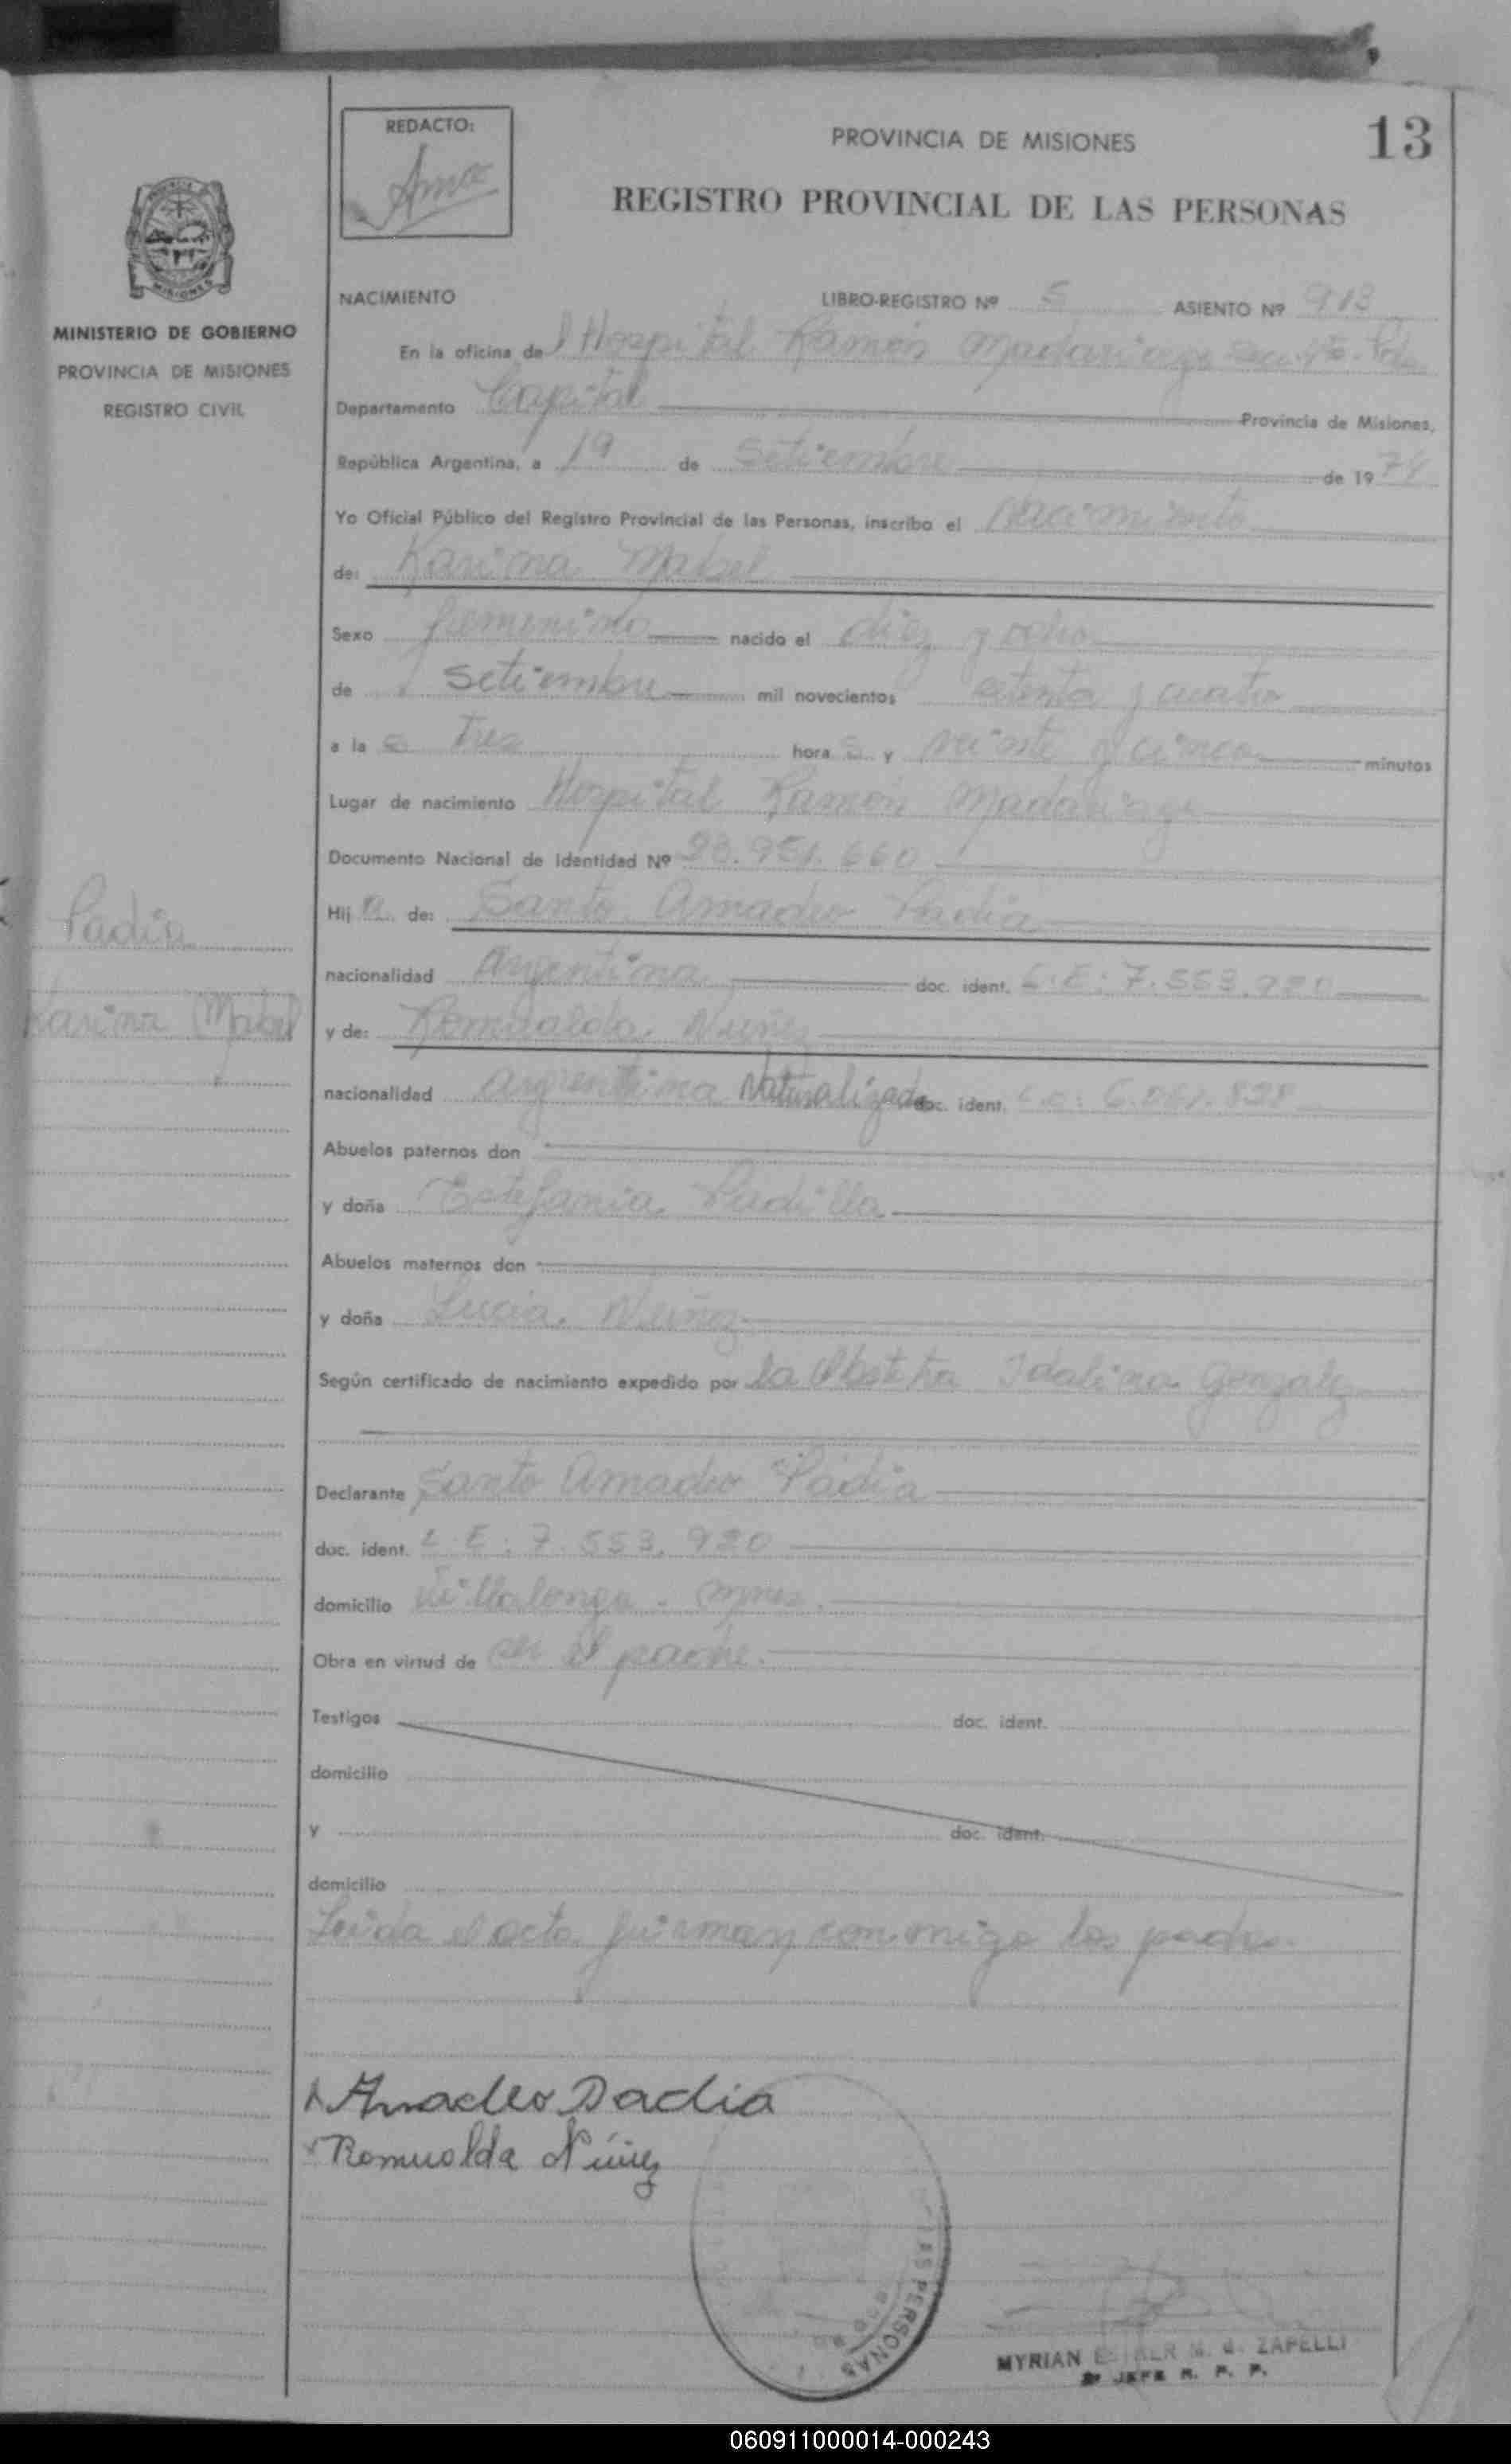 REDACTO:
PROVINCIA DE MISIONES
13
REGISTRO PROVINCIAL DE LAS PERSONAS
MISIONES
MINISTERIO DE GOBIERNO
PROVINCIA DE MISIONES
REGISTRO CIVIL
NACIMIENTO LIBRO-REGISTRO Nº 5 ASIENTO Nº 913
En la oficina del Hospital Ramón Madariaga
Departamento Capital Provincia de Misiones,
República Argentina, a 19 de Setiembre de 1974
Yo Oficial Público del Registro Provincial de las Personas, inscribo el Nacimiento
de: Karina Mabel
Sexo femenino nacido el diez y ocho
de Setiembre mil novecientos setenta y cuatro
a la s tres hora s y veinte y cinco minutos
Lugar de nacimiento Hospital Ramón Madariaga
Documento Nacional de Identidad Nº 23.951.660
Hij a de: Santo Amadeo Padia
nacionalidad Argentina doc. ident. L.E: 7.553.920
y de: Romualda Nuñez
nacionalidad argentina Naturalizada doc. ident.
Abuelos paternos don
y doña Estefania Padilla
Abuelos maternos don
y doña Lucia Nuñez
Según certificado de nacimiento expedido por la Obstetra Idalina Gonzalez
Declarante Santo Amadeo Padia
doc. ident. L.E: 7.553.920
domicilio Villalonga
Obra en virtud de ser el padre.
Testigos doc. ident.
domicilio
y doc. ident.
domicilio
Leida el acta firman conmigo los padres.
Padia
Karina Mabel
Amadeo Padia
Romualda Núñez
LAS PERSONAS
MYRIAN ZAPELLI
JEFE R. P. P.
060911000014-000243